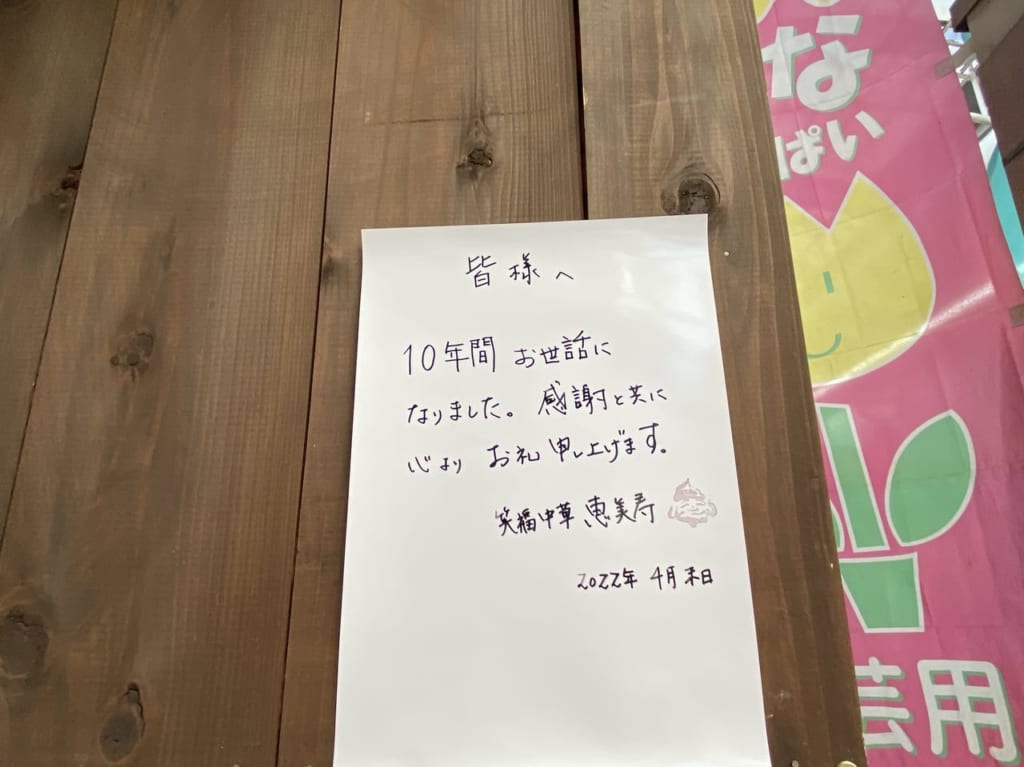 皆様へ
10年間 お世話に
なりました。感謝と共に
心より お礼申し上げます。
笑福中草 恵美寿
2022年 4月末日
な
ぱい
芸用